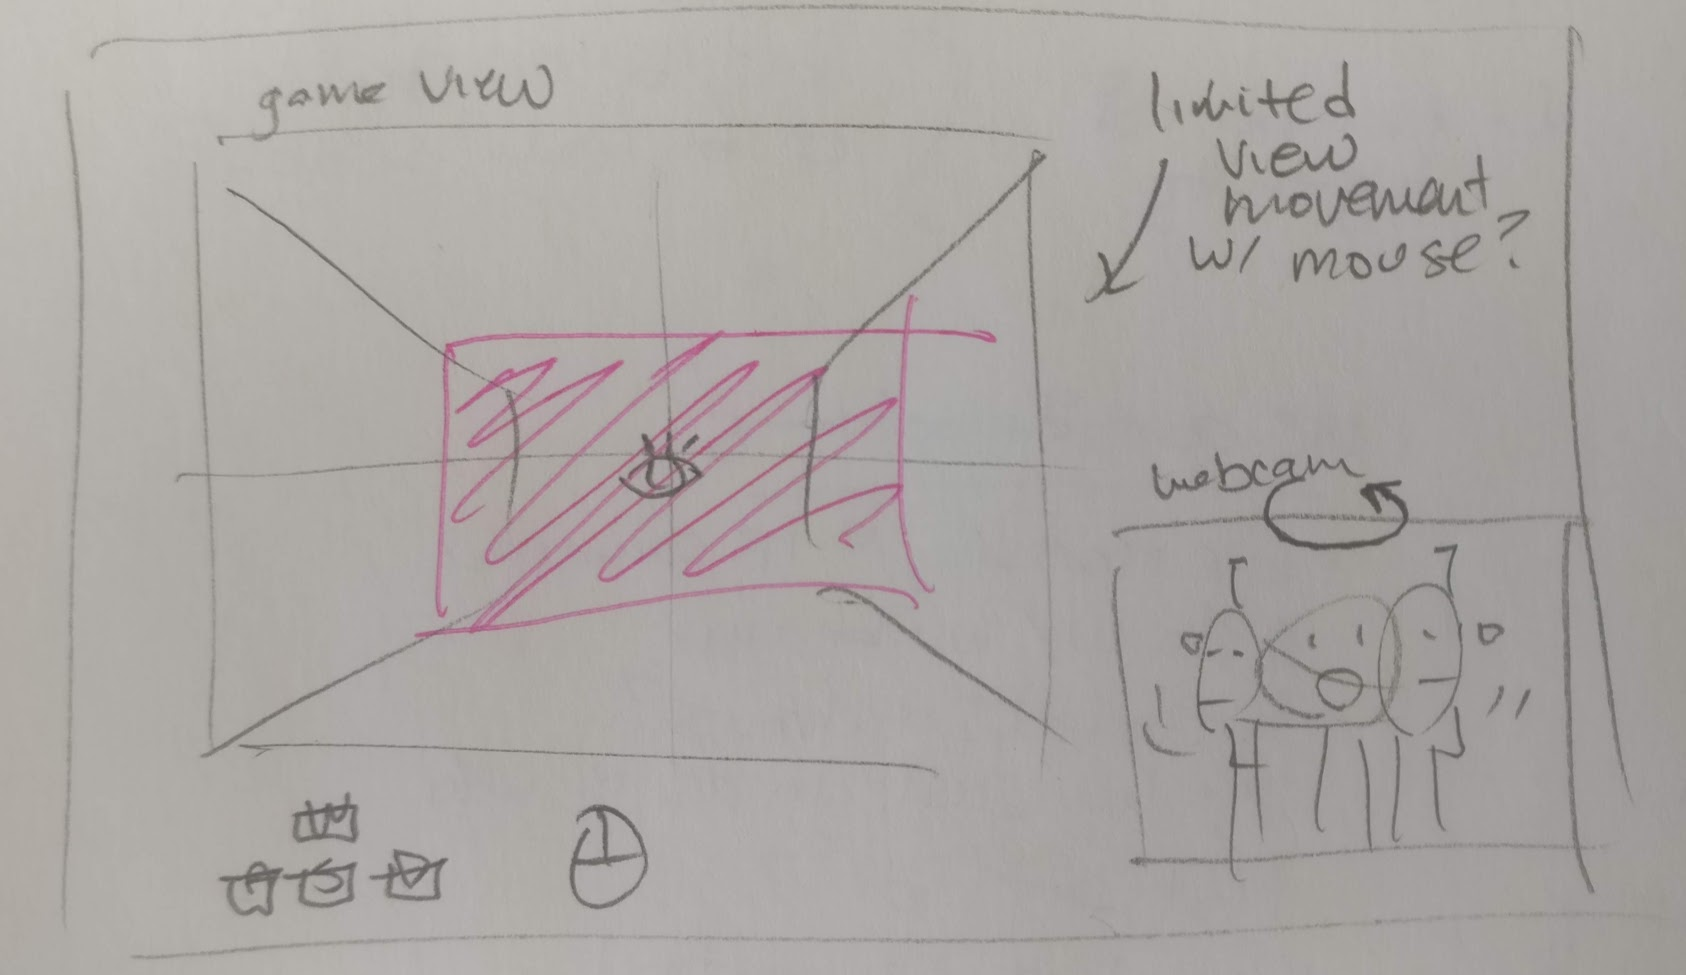 game view
limited
view
movement
w/ mouse?
webcam
W
A S D